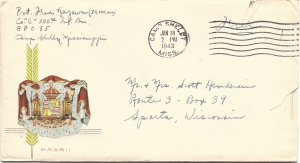 Pvt. Isao Nagawa
Co "E" 100th Inf. Bn
A P O 85
Camp Shelby, Mississippi
CAMP SHELBY
JAN 18
2 PM
1943
MISS.
Free
Mr. & Mrs. Scott Henderson
Route 3 - Box 39
Sparta, Wisconsin
HAWAII